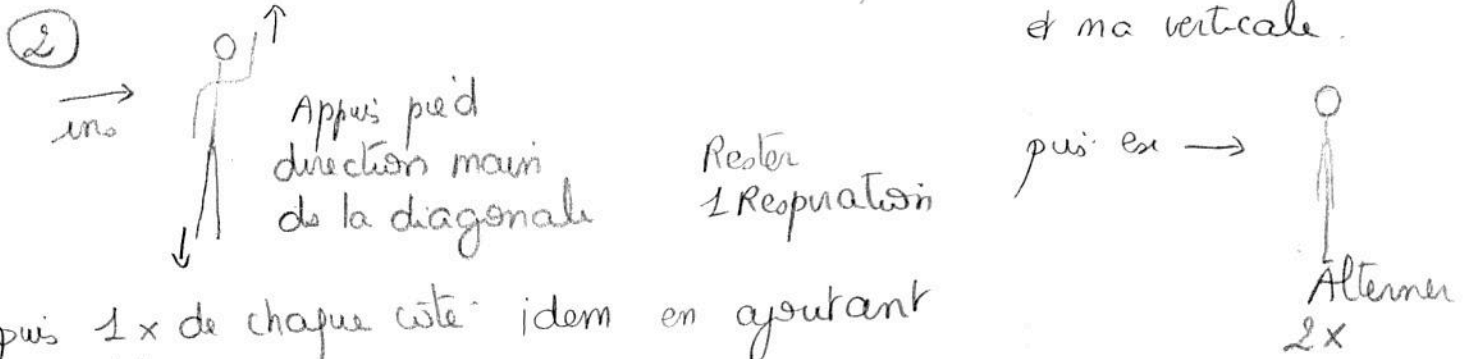 et ma verticale.
2
ins
Appui pied
direction main
de la diagonale
Rester
1 Respiration
puis ex →
Alterner
2x
puis 1x de chaque côté idem en ajoutant